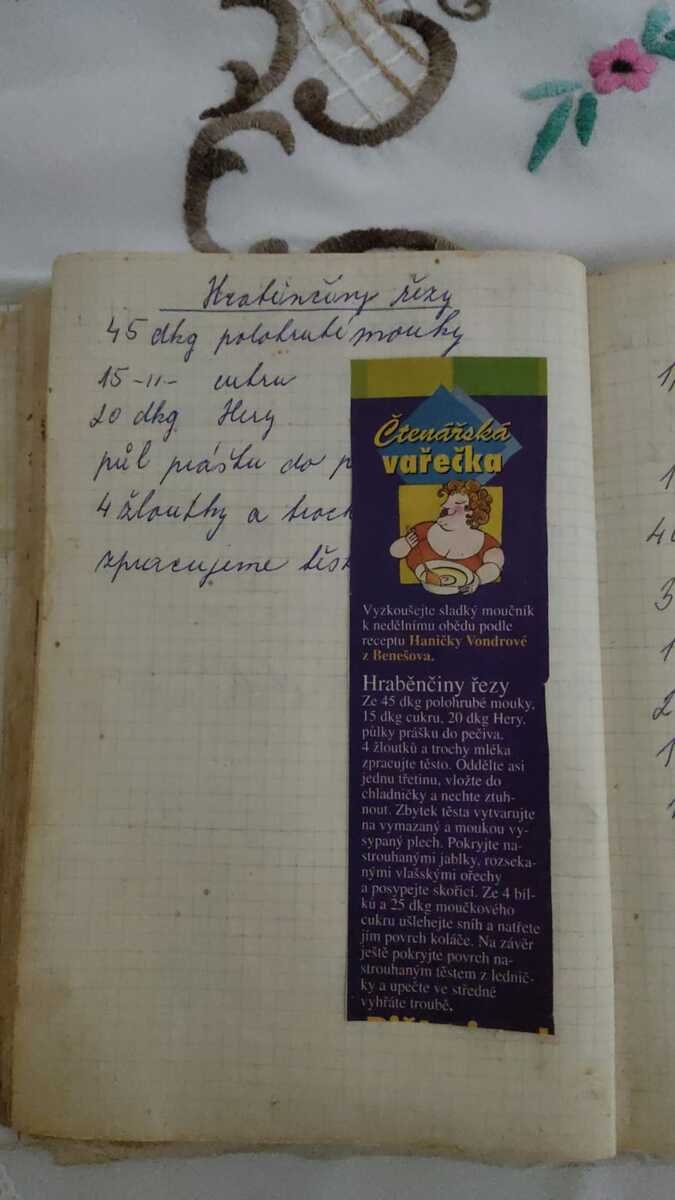 Hraběnčiny řezy
45 dkg polohrubé mouky
15 -11- cukru
20 dkg Hery
půl prášku do p
4 žloutky a troch
zpracujeme těst
Čtenářská
vařečka
Vyzkoušejte sladký moučník
k nedělnímu obědu podle
receptu Haničky Vondrové
z Benešova.
Hraběnčiny řezy
Ze 45 dkg polohrubé mouky,
15 dkg cukru, 20 dkg Hery,
půlky prášku do pečiva,
4 žloutků a trochy mléka
zpracujte těsto. Oddělte asi
jednu třetinu, vložte do
chladničky a nechte ztuh-
nout. Zbytek těsta vytvarujte
na vymazaný a moukou vy-
sypaný plech. Pokryjte na-
strouhanými jablky, rozseka-
nými vlašskými ořechy
a posypejte skořicí. Ze 4 bíl-
ků a 25 dkg moučkového
cukru ušlehejte sníh a natřete
jím povrch koláče. Na závěr
ještě pokryjte povrch na-
strouhaným těstem z lednič-
ky a upečte ve středně
vyhřáté troubě.
1
1
3
1
2
1